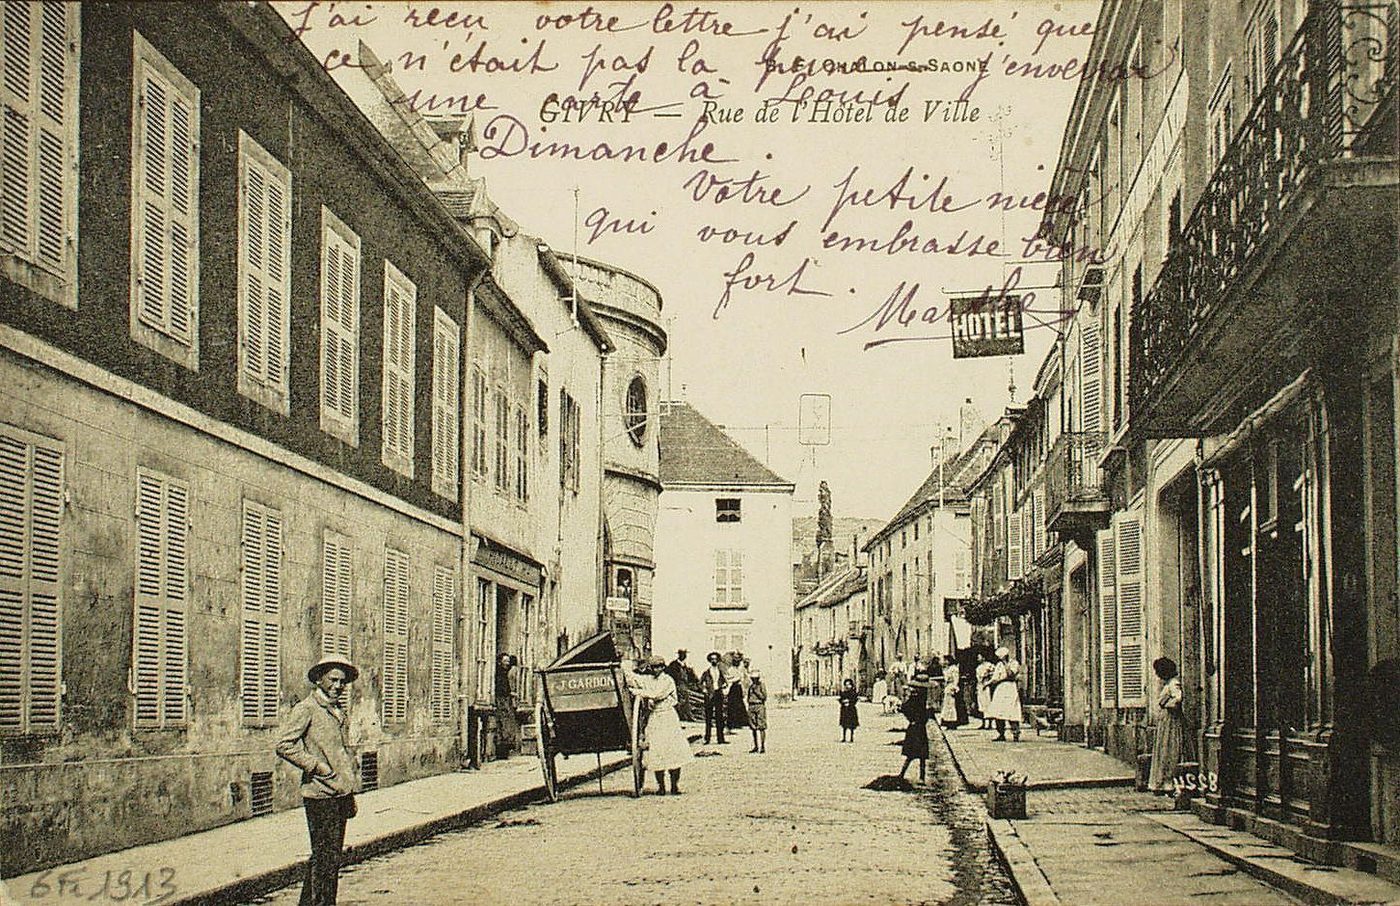 j'ai reçu votre lettre j'ai pensé que
ce n'était pas la j'enverrai
B.F. CHALON-S-SAONE
une carte à Louis
GIVRY — Rue de l'Hôtel de Ville
Dimanche.
Votre petite nièce
qui vous embrasse bien
fort.
Marthe
HOTEL
J. GARDON
8224
6 Fr 1913